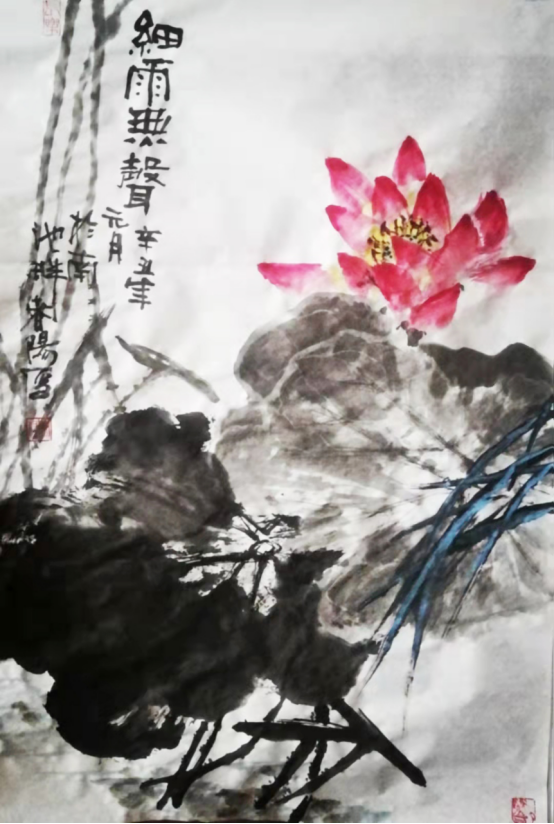 細雨無聲
辛丑年
元月
於南
池畔春陽寫